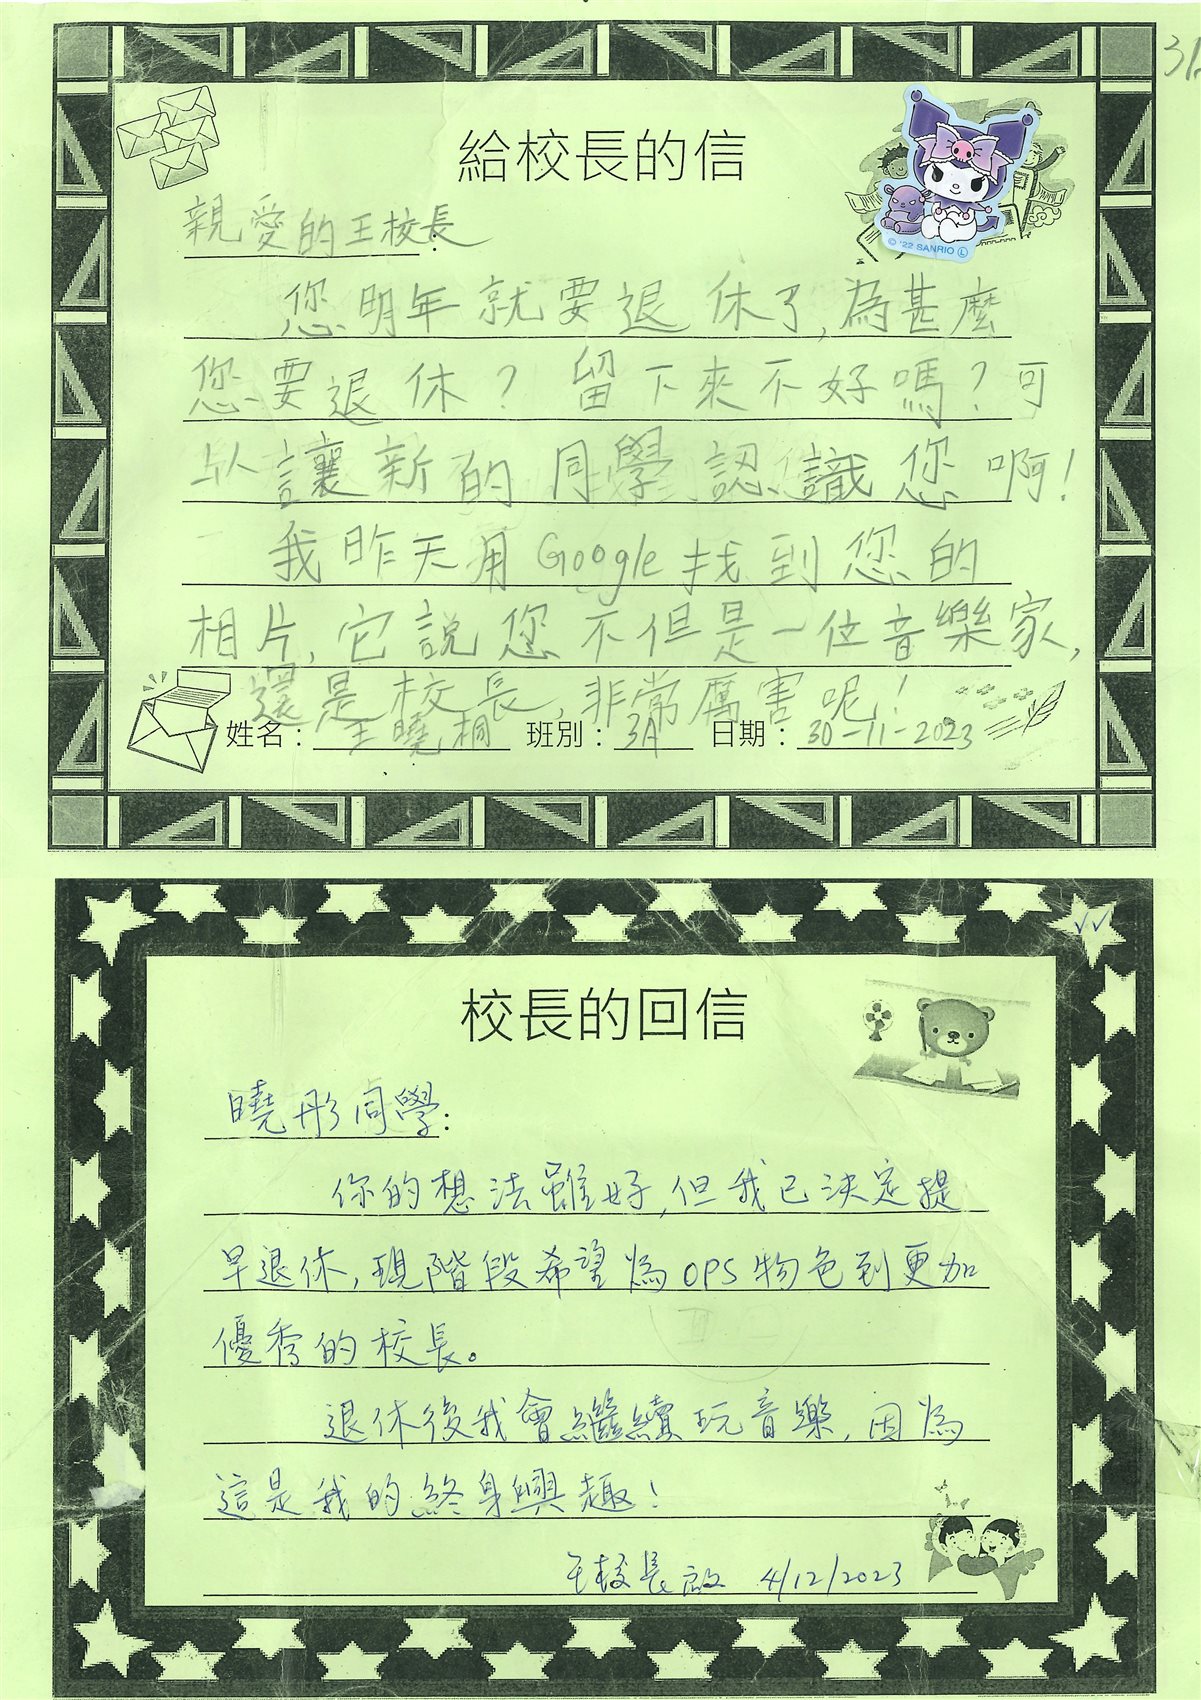 給校長的信
© '22 SANRIO Ⓛ
親愛的王校長:
您明年就要退休了,為甚麼
您要退休?留下來不好嗎?可
以讓新的同學認識您啊!
我昨天用Google找到您的
相片,它說您不但是一位音樂家,
還是校長,非常厲害呢!
姓名:王曉桐 班別:3A 日期:30-11-2023
校長的回信
曉彤同學:
你的想法雖好,但我已決定提
早退休,現階段希望為OPS物色到更加
優秀的校長。
退休後我會繼續玩音樂,因為
這是我的終身興趣!
王校長啟 4/12/2023